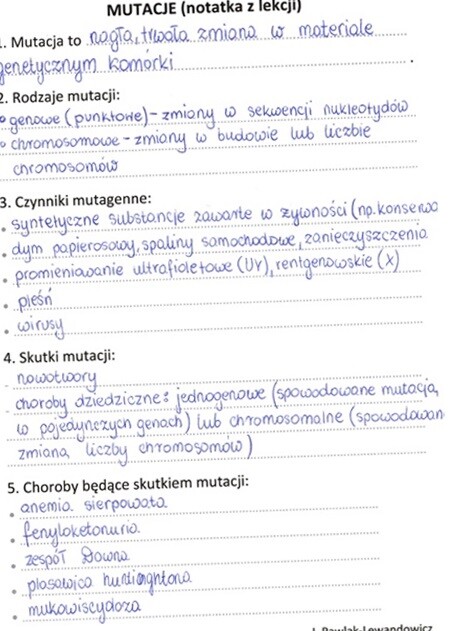 MUTACJE (notatka z lekcji)
1. Mutacja to nagła, trwała zmiana w materiale
genetycznym komórki.
2. Rodzaje mutacji:
• genowe (punktowe) – zmiany w sekwencji nukleotydów
• chromosomowe – zmiany w budowie lub liczbie
chromosomów
3. Czynniki mutagenne:
• syntetyczne substancje zawarte w żywności (np. konserwa
• dym papierosowy, spaliny samochodowe, zanieczyszczenia
• promieniowanie ultrafioletowe (UV), rentgenowskie (X)
• pleśń
• wirusy
4. Skutki mutacji:
nowotwory
choroby dziedziczne: jednogenowe (spowodowane mutacją
w pojedynczych genach) lub chromosomalne (spowodowan
zmianą liczby chromosomów)
5. Choroby będące skutkiem mutacji:
• anemia sierpowata
• fenyloketonuria
• zespół Downa
• pląsawica huntingtona
• mukowiscydoza
J. Pawlak-Lewandowicz